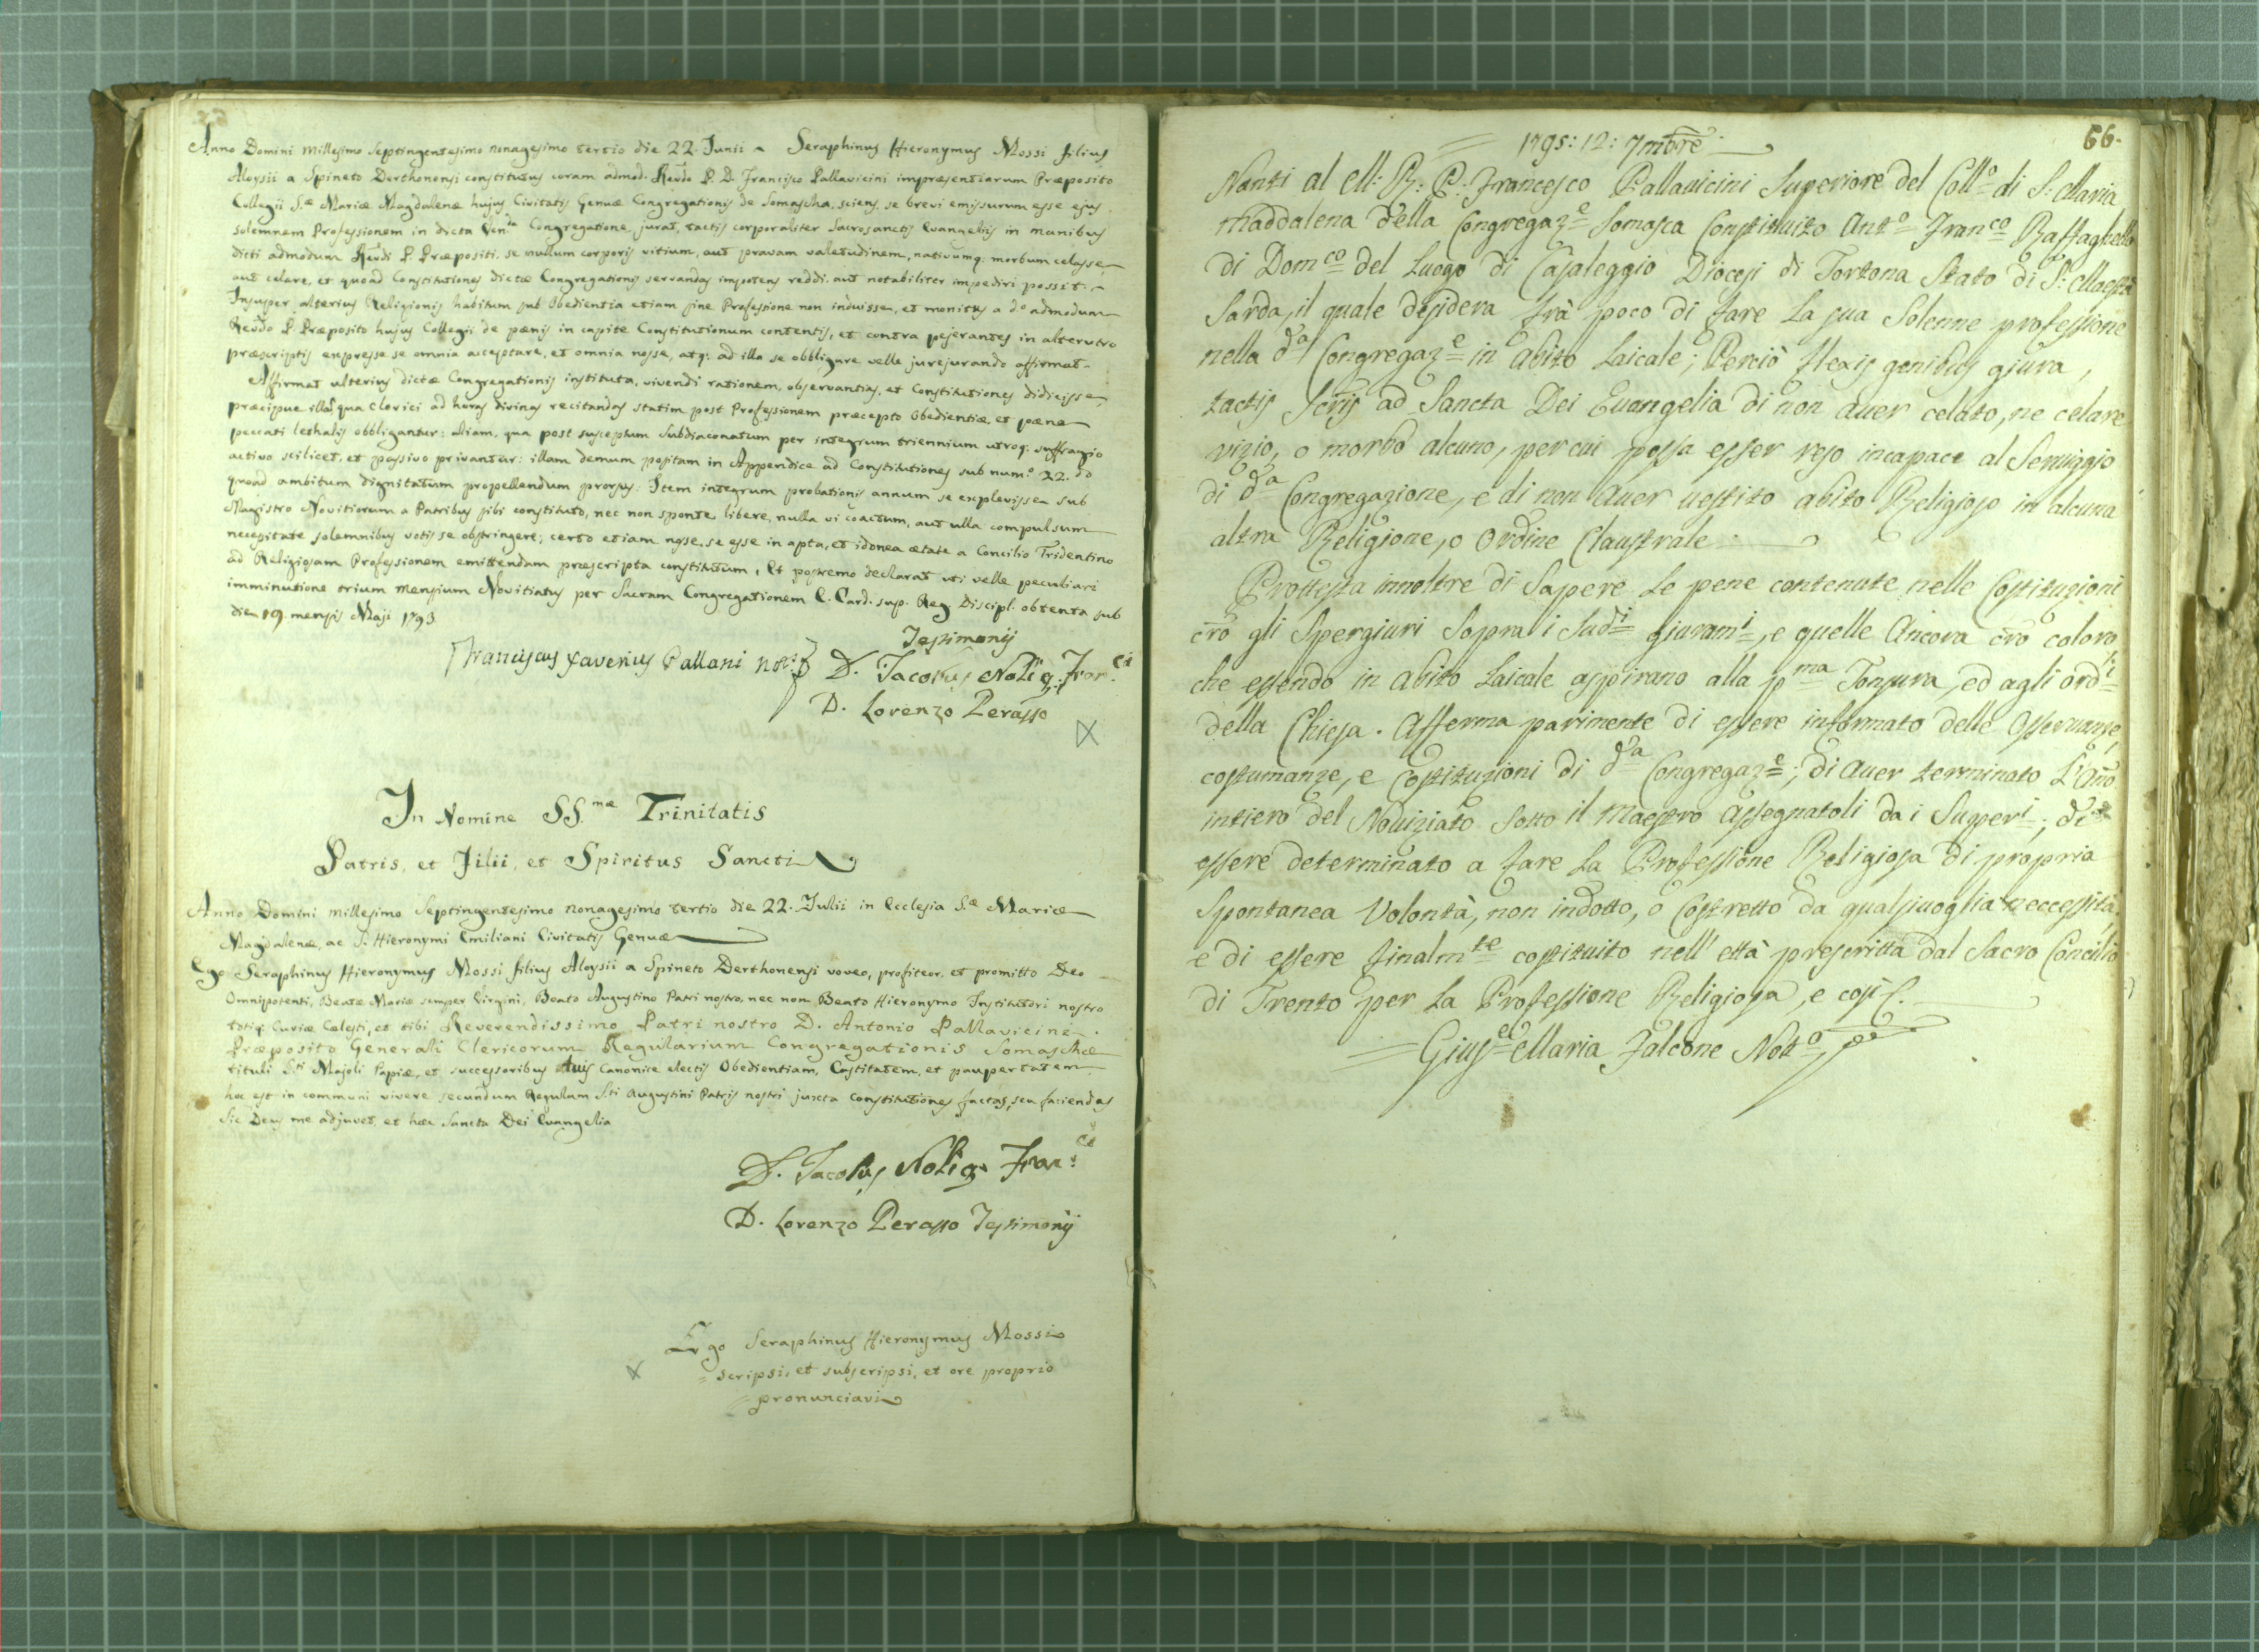 Anno Domini Millesimo Septingentesimo nonagesimo tertio die 22. Junii Seraphinus Hieronymus Mossi filius
Aloysii a Spineto Derthonensi constitutus coram admod. Revdo P. D. Francisco Pallavicini impræsentiarum Præposito
Collegii S.æ Mariæ Magdalenæ hujus Civitatis Genuæ Congregationis de Somascha, sciens se brevi emissurum esse ejus
solemnem Professionem in dicta Ven.da Congregatione, jurat, tactis corporaliter Sacrosanctis Evangeliis in manibus
dicti admodum Revdi P. Præpositi se nullum corporis vitium, aut pravam valetudinem, nativumq: morbum celasse
aut celare, et quoad Constitutiones dictæ Congregationis servandas impotens reddi, aut notabiliter impediri possit.
Insuper alterius Religionis habitum sub Obedientia etiam sine Professione non induisse, et monitus a d.o admodum
Revdo P. Præposito hujus Collegii de pœnis in capite Constitutionum contentis, et contra pejerantes in alterutro
præscriptis expresse se omnia acceptare, et omnia nosse, atq: ad illa se obbligare velle jurejurando affirmat.
Affirmat ulterius dictæ Congregationis instituta, vivendi rationem, observantias, et Constitutiones didicisse,
præcipue illas qua Clerici ad horas divinas recitandas statim post Professionem præcepto Obedientiæ, et pœna
peccati lethalis obbligantur: aliam, qua post susceptum Subdiaconatum per integrum triennium utroq: suffragio
activo scilicet, et passivo privantur: illam demum positam in Appendice ad Constitutiones sub num.o 22. do
quoad ambitum dignitatum propellendum prorsus. Item integrum probationis annum se explevisse sub
Magistro Novitiorum a Patribus sibi constituto, nec non sponte, libere, nulla vi coactum, aut ulla compulsum
necessitate solemnibus votis se obstringere; certo etiam nosse, se esse in apta, et idonea ætate a Concilio Tridentino
ad Religiosam Professionem emittendam præscripta constitutum, et postremo declarat uti velle peculiari
imminutione trium mensium Novitiatus per Sacram Congregationem E. Card. sup. Reg Discipl. obtenta sub
die 19. mensis Maji 1793.
Testimonij
Franciscus Xaverius Pallani Not.s D. Jacobus Noli q. Fran.ci
D. Lorenzo Perasso
In Nomine SS.mæ Trinitatis
Patris, et Filii, et Spiritus Sancti
Anno Domini Millesimo Septingentesimo nonagesimo tertio die 22. Julii in Ecclesia S.æ Mariæ
Magdalenæ, ac S. Hieronymi Emiliani Civitatis Genuæ
Ego Seraphinus Hieronymus Mossi filius Aloysii a Spineto Derthonensi voveo, profiteor, et promitto Deo
Omnipotenti, Beatæ Mariæ semper Virgini, Beato Augustino Patri nostro, nec non Beato Hieronymo Institutori nostro
totiq: Curiæ Cœlesti, et tibi Reverendissimo Patri nostro D. Antonio Pallavicine
Præposito Generali Clericorum Regularium Congregationis Somaschæ
tituli S.ti Majoli Papiæ, et successoribus tuis Canonice electis Obedientiam, Castitatem, et paupertatem
hoc est in communi vivere secundum Regulam S.ti Augustini Patris nostri juxta Constitutiones factas, seu faciendas
Sic Deus me adjuvet, et hæc Sancta Dei Evangelia
D. Jacobus Noli q. Fran.ci
D. Lorenzo Perasso Testimonij
Ergo Seraphinus Hieronymus Mossi
scripsi, et subscripsi, et ore proprio
pronunciavi
66.
1795: 12: 7mbre
Nanti al M: R: P: Francesco Pallavicini Superiore del Coll.o di S: Maria
Maddalena della Congregaz.e Somasca Constituito Ant.o Fran.co Raffaghello
di Dom.co del Luogo di Casaleggio Diocesi di Tortona Stato di S: Maestà
Sarda, il quale desidera frà poco di fare la sua Solenne professione
nella d.a Congregaz.e in abito Laicale; Perciò flexis genibus giura,
tactis Scris ad Sancta Dei Evangelia di non aver celato, ne celare
vizio, o morbo alcuno, per cui possa esser reso incapace al Serviggio
di d.a Congregazione, e di non aver vestito abito Religioso in alcuna
altra Religione, o Ordine Claustrale
Prottesta innoltre di Sapere le pene contenute nelle Costituzioni
cro gli Spergiuri Sopra i Sud.i giuram.i, e quelle Ancora cro coloro,
che essendo in abito Laicale aspirano alla p.ma Tonsura, ed agli ord.i
della Chiesa. Afferma parimente di essere informato delle Osservanze,
costumanze, e Costituzioni di d.a Congregaz.e; di aver terminato L'Año
intiero del Noviziato Sotto il Maestro assegnatoli da i Super.i; di
essere determinato a fare la Professione Religiosa di propria
Spontanea Volontà, non indotto, o Costretto da qualsivoglia neccessità,
e di essere finalm.te costituito nell' età prescritta dal Sacro Concilio
di Trento per la Professione Religiosa, e così
Gius.e Maria Falcone Not.o